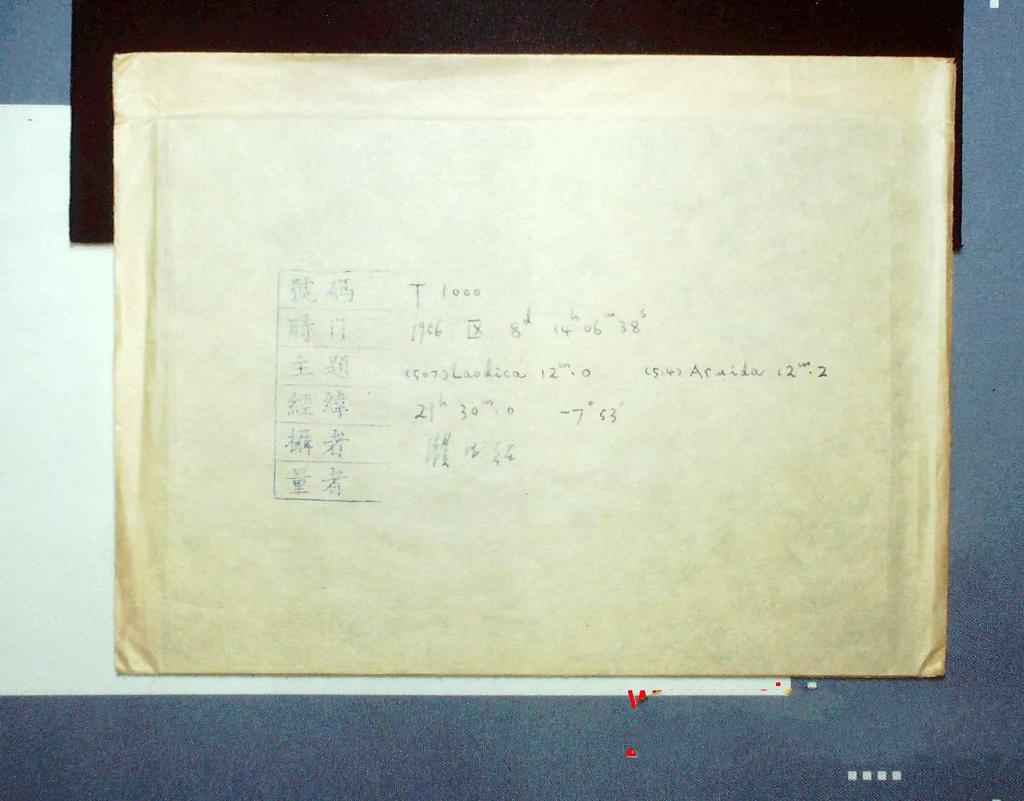 號碼 T 1000
時日 1956 区 8d 14h 06m 38s
主題 (507) Laodica 12m.0 (514) Armida 12m.2
經緯 21h 30m.0 -7° 53'
攝者
量者